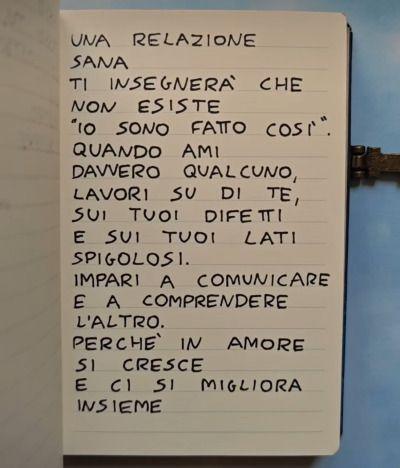 UNA RELAZIONE
SANA
TI INSEGNERÀ CHE
NON ESISTE
"IO SONO FATTO COSÌ".
QUANDO AMI
DAVVERO QUALCUNO,
LAVORI SU DI TE,
SUI TUOI DIFETTI
E SUI TUOI LATI
SPIGOLOSI.
IMPARI A COMUNICARE
E A COMPRENDERE
L'ALTRO.
PERCHÈ IN AMORE
SI CRESCE
E CI SI MIGLIORA
INSIEME